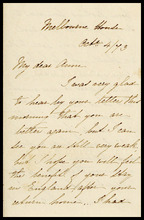 Melbourne House
Octr 4/73
My dear Anne
I was very glad
to hear by your letter this
morning that you are
better again, but I can
see you are still very weak,
but I hope you will feel
the benefit of your stay
in England, after your
return home, I had